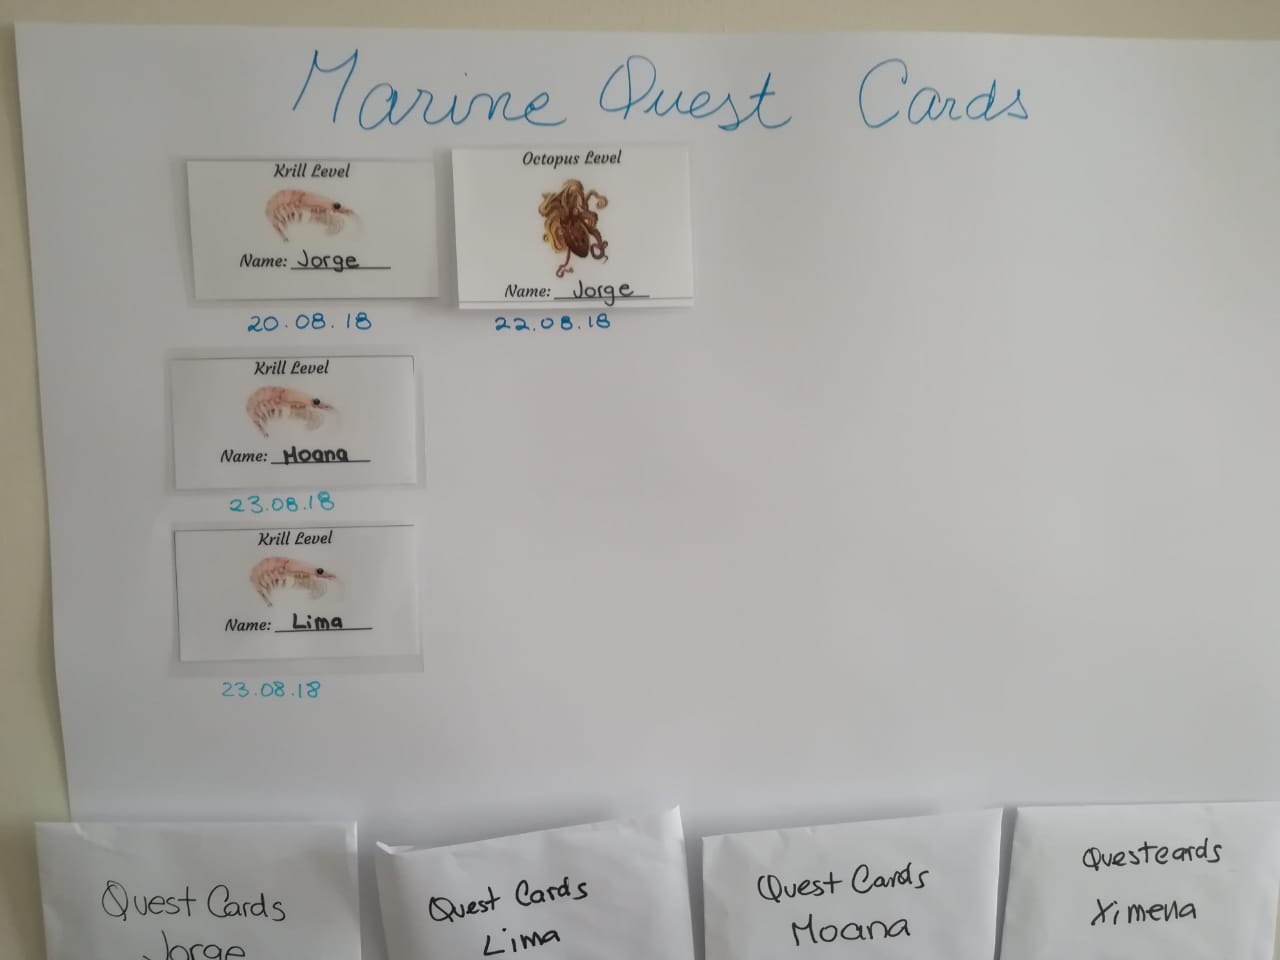 Marine Quest Cards
Krill Level
Name: Jorge
20.08.18
Octopus Level
Name: Jorge
22.08.18
Krill Level
Name: Moana
23.08.18
Krill Level
Name: Lima
23.08.18
Quest Cards
Jorge
Quest Cards
Lima
Quest Cards
Moana
Questcards
Ximena